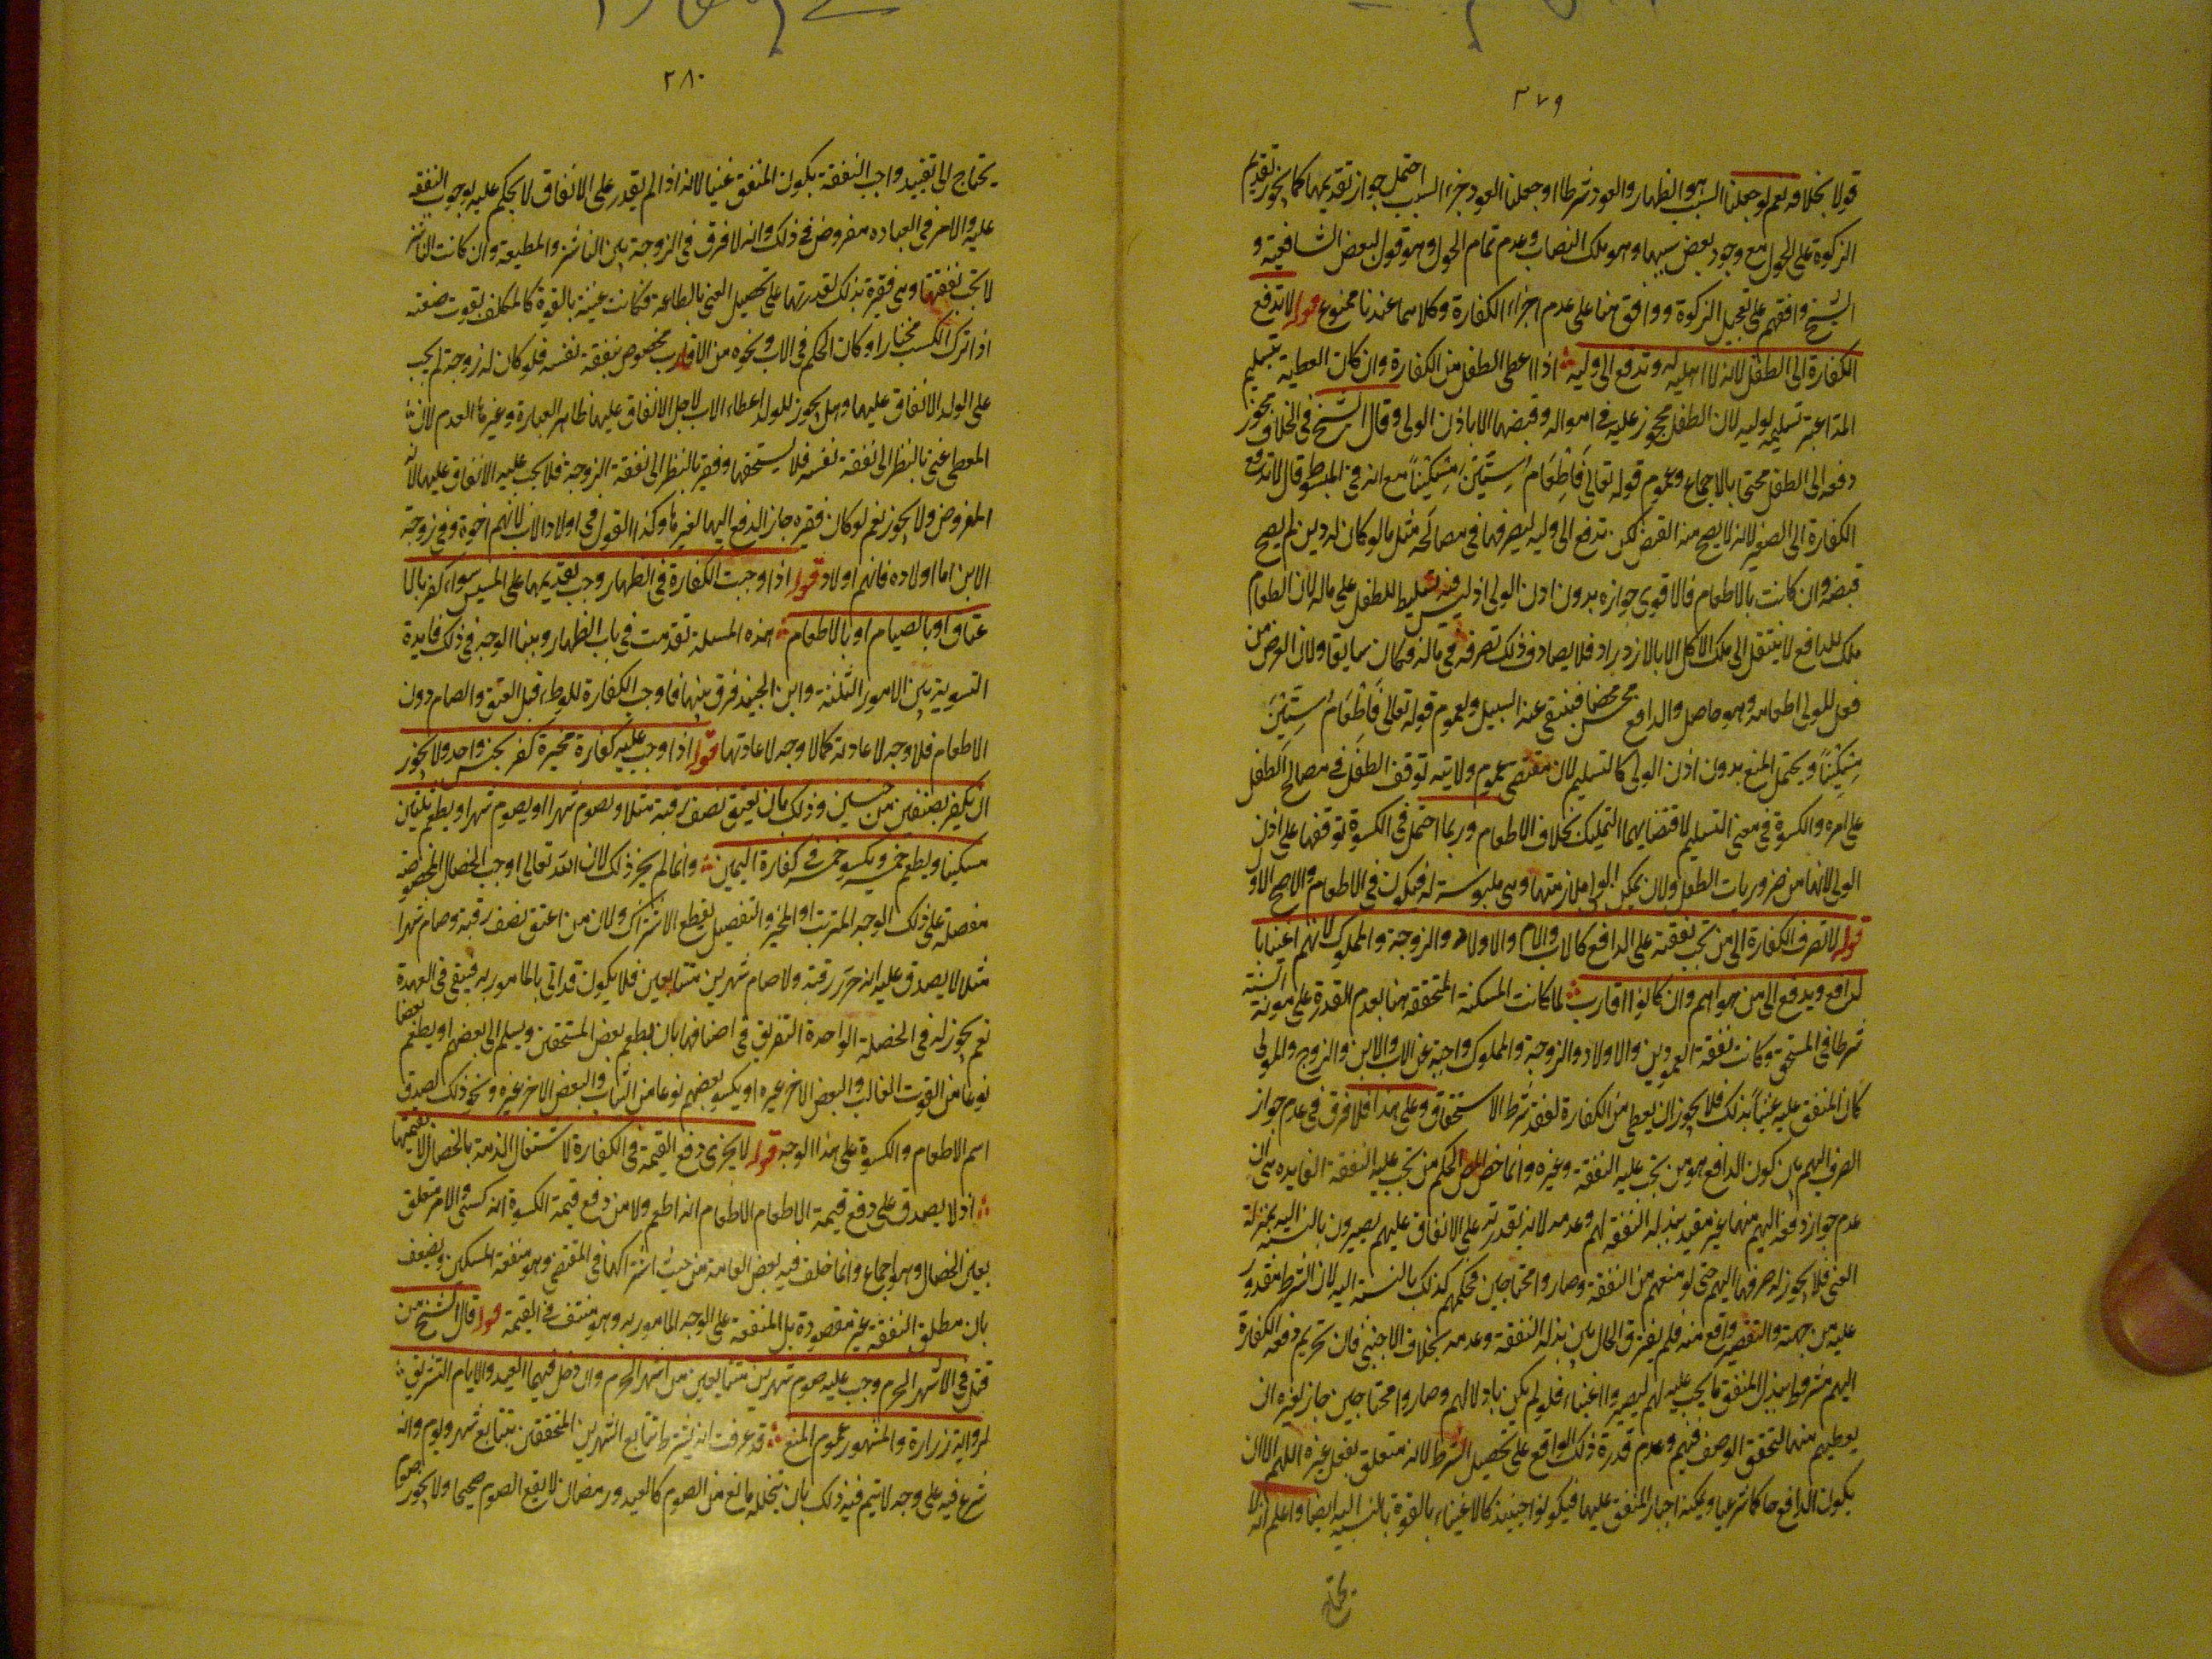 ٣٧٩
قولا بخلافه نعم لو جعلنا السبب هو الظهار والعود شرطا او جعلنا العود جزء السبب احتمل جواز تقديمها كما يجوز تقديم
الزكوة على الحول مع وجود بعض سببها وهو ملك النصاب وعدم تمام الحول وهو قول لبعض الشافعية و
الشيخ وافقهم على تعجيل الزكوة ووافق هنا على عدم اجزاء الكفارة وكلاهما عندنا ممنوع قوله لا تدفع
الكفارة الى الطفل لانه لا اهلية له وتدفع الى وليه اذا اعطى الطفل من الكفارة وان كان العطية بتسليم
المد اعتبر تسليمه لوليه لان الطفل محجور عليه في امواله وقبضها الا باذن الولي وقال الشيخ في الخلاف يجوز
دفعه الى الطفل محتجا بالاجماع وعموم قوله تعالى فَاِطْعَام سِتّينَ مِسْكينًا مع انه في المبسوط قال لا تدفع
الكفارة الى الصغير لانه لا يصح منه القبض لكن تدفع الى وليه ليصرفها في مصالحه مثل ما لو كان له دين لم يصح
قبضه وان كانت بالاطعام فالاقوى جوازه بدون اذن الولي اذ ليس فيه تسليط للطفل على ماله لان الطعام
ملك للدافع لا ينتقل الى ملك الآكل الا بالازدراد فلا يصادف ذلك تصرفه في ماله فكان سايقا ولان الغرض من
فعل للولي اطعامه وهو حاصل والدافع محسن محضا فينتفي عنه السبيل ولعموم قوله تعالى فَاِطْعَامُ سِتّينَ
مِسْكينًا ويحتمل المنع بدون اذن الولي كالتسليم لان مقتضى عموم ولايته توقف الطفل في مصالح الطفل
على امره والكسوة في معنى التسليم لاقتضايهما التمليك بخلاف الاطعام وربما احتمل في الكسوة توقفها على اذن
الولي لانها من ضروريات الطفل ولان يمكن الولي ابلاز منها وهي ملبوسة له فيكون في الاطعام والاصح الاول
قوله لا تصرف الكفارة الى من تجب نفقته على الدافع كالاب والام والاولاد والزوجة والمملوك لانهم اغنياء با
لدافع ويدفع الى من سواهم وان كانوا اقارب لما كانت المسكنة المتحققة هنا بعدم القدرة على مؤنة السنة
شرطا في المستحق وكانت نفقة العمودين والاولاد والزوجة والمملوك واجبة على الاب والابن والزوج والمولى
كان المنفق عليه غنيا بذلك فلا يجوز ان يعطى من الكفارة لفقد شرط الاستحقاق وعلى هذا فلا فرق في عدم جواز
الصرف اليهم بين كون الدافع هو من تجب عليه النفقة وغيره وانما خص المص الحكم من تجب عليه النفقة لفايدة هي ان
عدم جواز دفعه اليهم منها غير مقيد ببذله النفقة لهم وعدمه لانه بقدرته على الانفاق عليهم يصيرون بالنسبة اليه بمنزلة
الغني فلا يجوز له صرفها اليهم حتى لو منعهم من النفقة وصاروا محتاجين فحكمهم كذلك بالنسبة اليه لان الشرط مقدور
عليه من جهته والتقصير واقع منه فلم يفترق الحال بين بذله النفقة وعدمه بخلاف الاجنبي فان تحريم دفعه الكفارة
اليهم مشروط ببذل المنفق ما يجب عليه لهم ليصيروا اغنياء فلو لم يكن باذلا لهم وصاروا محتاجين جاز لغيره ان
يعطيهم منها لتحقق الوصف فيهم وعدم قدرة ذلك الواقع على تحصيل الشرط لانه متعلق بفعل غيره اللهم الا ان
يكون الدافع حاكما شرعيا ويمكنه اجبار المنفق عليها فيكونوا حينئذ كالاغنياء بالقوة بالنسبة اليه ايضا واعلم انه لا
يحتاج
٣٨٠
يحتاج الى تقييد واجب النفقة بكون المنفق غنيا لانه اذا لم يقدر على الانفاق لا يحكم عليه بوجوب النفقة
عليه والامر في العبادة مفروض في ذلك وانه لا فرق في الزوجة بين الناشز والمطيعة وان كانت الناشز
لا تجب نفقتها وهي فقيرة بذلك لقدرتها على تحصيل الغنى بالطاعة فكانت غنية بالقوة كالمتكلف بقوت صنعته
اذا ترك الكسب مختارا وكان الحكم في الاب ونحوه من الاقارب مخصوص بنفقة نفسه فلو كان له زوجة لم يجب
على الولد الانفاق عليها وهل يجوز للولد اعطاء الاب لاجل الانفاق عليها ظاهر العبارة وغيرها العدم لان
المعطى غني بالنظر الى نفقة نفسه فلا يستحقها وفقير بالنظر الى نفقة الزوجة فلا يجب عليه الانفاق عليها لانه
المفروض ولا يجوز نعم لو كان فقيره جاز الدفع اليها لغيرها وكذا القول في اولاد الاب لانهم اخوة وفي زوجة
الابن اما اولاده فانهم اولاد قوله اذا وجبت الكفارة في الظهار وجب تقديمها على المسيس سواء كفر بالا
عتاق او بالصيام او بالاطعام هذه المسئلة تقدمت في باب الظهار وبينا الوجه في ذلك فايدة
التسوية بين الامور الثلثة وابن الجنيد فرق بينها فاوجب الكفارة للوطء قبل العتق والصيام دون
الاطعام فلا وجه لاعادته كما لا وجه لاعادتها قوله اذا وجب عليه كفارة مخيرة كفر بجنس واحد ولا يجوز
ان يكفر بصنفين من جنسين وذلك بان يعتق نصف رقبة مثلا ويصوم شهرا او يصوم شهرا ويطعم ثلثين
مسكينا ويطعم خمسة ويكسو خمسة في كفارة اليمين وانما لم يجز ذلك لان الله تعالى اوجب الخصال المخصوصة
مفصلة على ذلك الوجه المترتب او المخير والتفصيل يقطع الاشتراك ولان من اعتق نصف رقبة وصام شهرا
مثلا لا يصدق عليه انه حرّر رقبة ولا صام شهرين متتابعين فلا يكون قد اتى بالمامور به فيبقى في العهدة
نعم يجوز له في الخصلة الواحدة التفريق في اصنافها بان يطعم بعض المستحقين ويسلم الى بعضهم او يطعم بعضا
نوعا من القوت الغالب والبعض الاخر غيره او يكسو بعضهم نوعا من الثياب والبعض الاخر غيره ونحو ذلك لصدق
اسم الاطعام والكسوة على هذا الوجه قوله لا يجزى دفع القيمة في الكفارة لاشتغال الذمة بالخصال لا بقيمتها
اذ لا يصدق على دفع قيمة الاطعام الاطعام انه اطعم ولا من دفع قيمة الكسوة انه كسى والامر متعلق
بعين الخصال وهو اجماع وانما خلف فيه بعض العامة من حيث اشتراكهما في المقتضي وهو منفعة المسكين ويضعف
بان مطلق النفقة غير مقصودة بل المنفعة على الوجه المامور به وهو منتف في القيمة قوله قال الشيخ من
قتل في الاشهر الحرم وجب عليه صوم شهرين متتابعين من اشهر الحرم وان دخل فيهما العيد والايام التشريق
لرواية زرارة والمشهور عموم المنع قد عرفت انه يشترط تتابع الشهرين المتحققين بتتابع شهر ويوم وانه
شرع فيه على وجه لا يتم فيه ذلك بان يتخلله مانع من الصوم كالعيد ورمضان لا يقع الصوم صحيحا ولا يجوز صوم